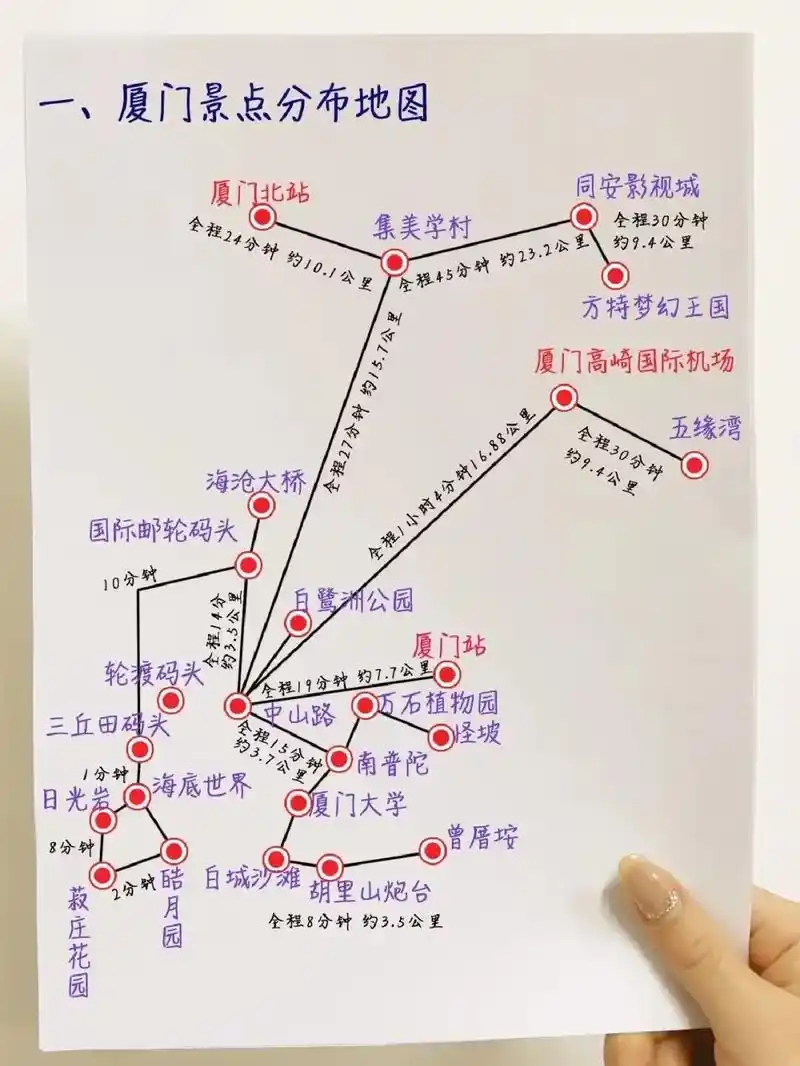 一、厦门景点分布地图
厦门北站
同安影视城
集美学村
全程24分钟 约10.1公里
全程45分钟 约23.2公里
全程30分钟
约9.4公里
方特梦幻王国
全程27分钟 约15.7公里
厦门高崎国际机场
五缘湾
全程30分钟
约9.4公里
全程1小时4分钟16.88公里
海沧大桥
国际邮轮码头
10分钟
全程14分
约3.5公里
白鹭洲公园
厦门站
全程19分钟 约7.7公里
轮渡码头
中山路
万石植物园
三丘田码头
怪坡
全程15分钟
约3.7公里
南普陀
1分钟
海底世界
日光岩
厦门大学
8分钟
曾厝垵
2分钟
白城沙滩
胡里山炮台
菽庄花园
皓月园
全程8分钟 约3.5公里